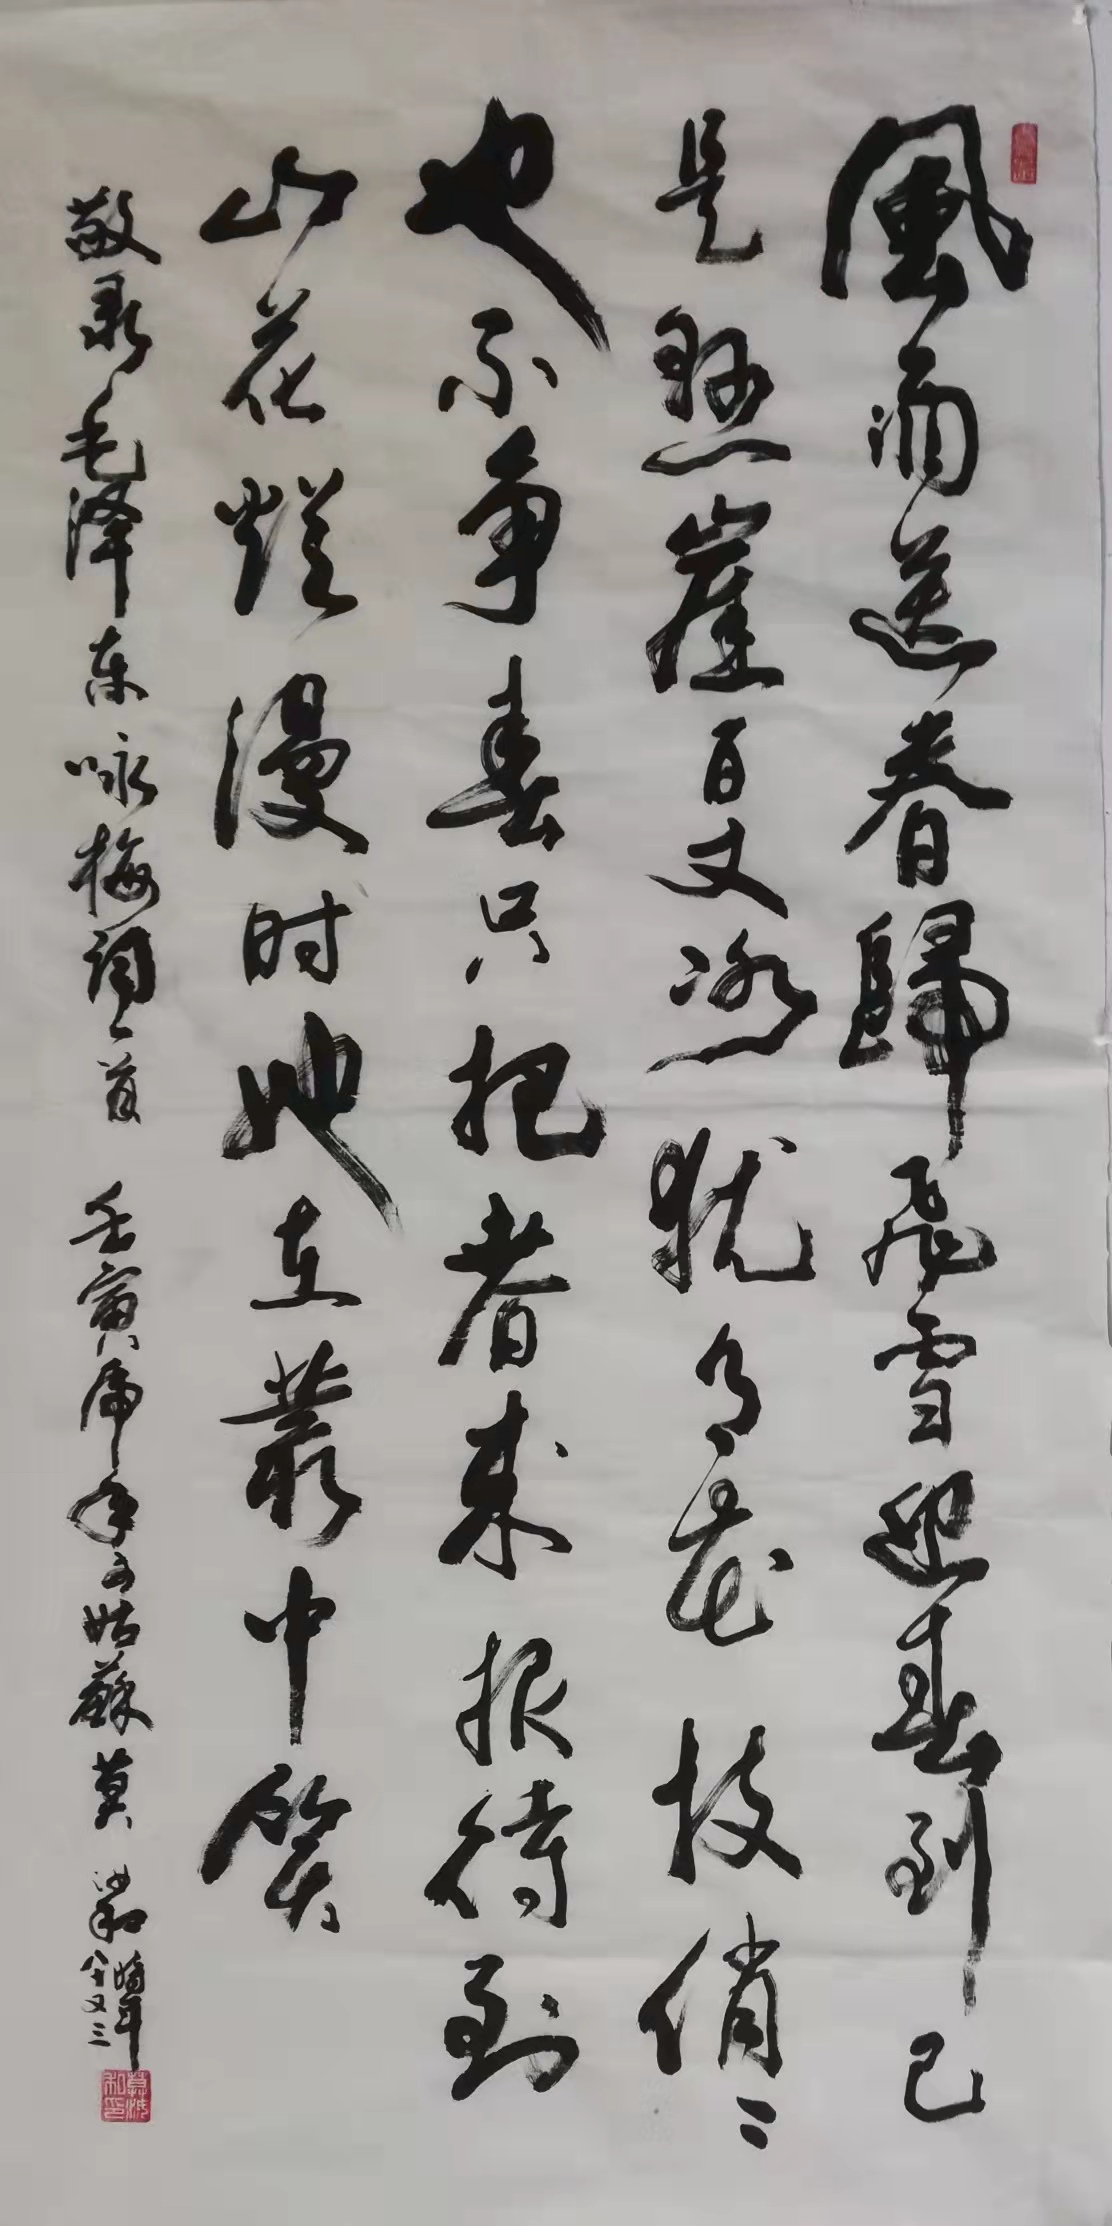 風雨送春歸飛雪迎春到已
是懸崖百丈冰犹有花枝俏〻
也不争春只把春来报待到
山花烂漫时她在叢中笑
敬录毛泽东咏梅词一首 壬寅虎年于姑蘇莫和時年
八十又三